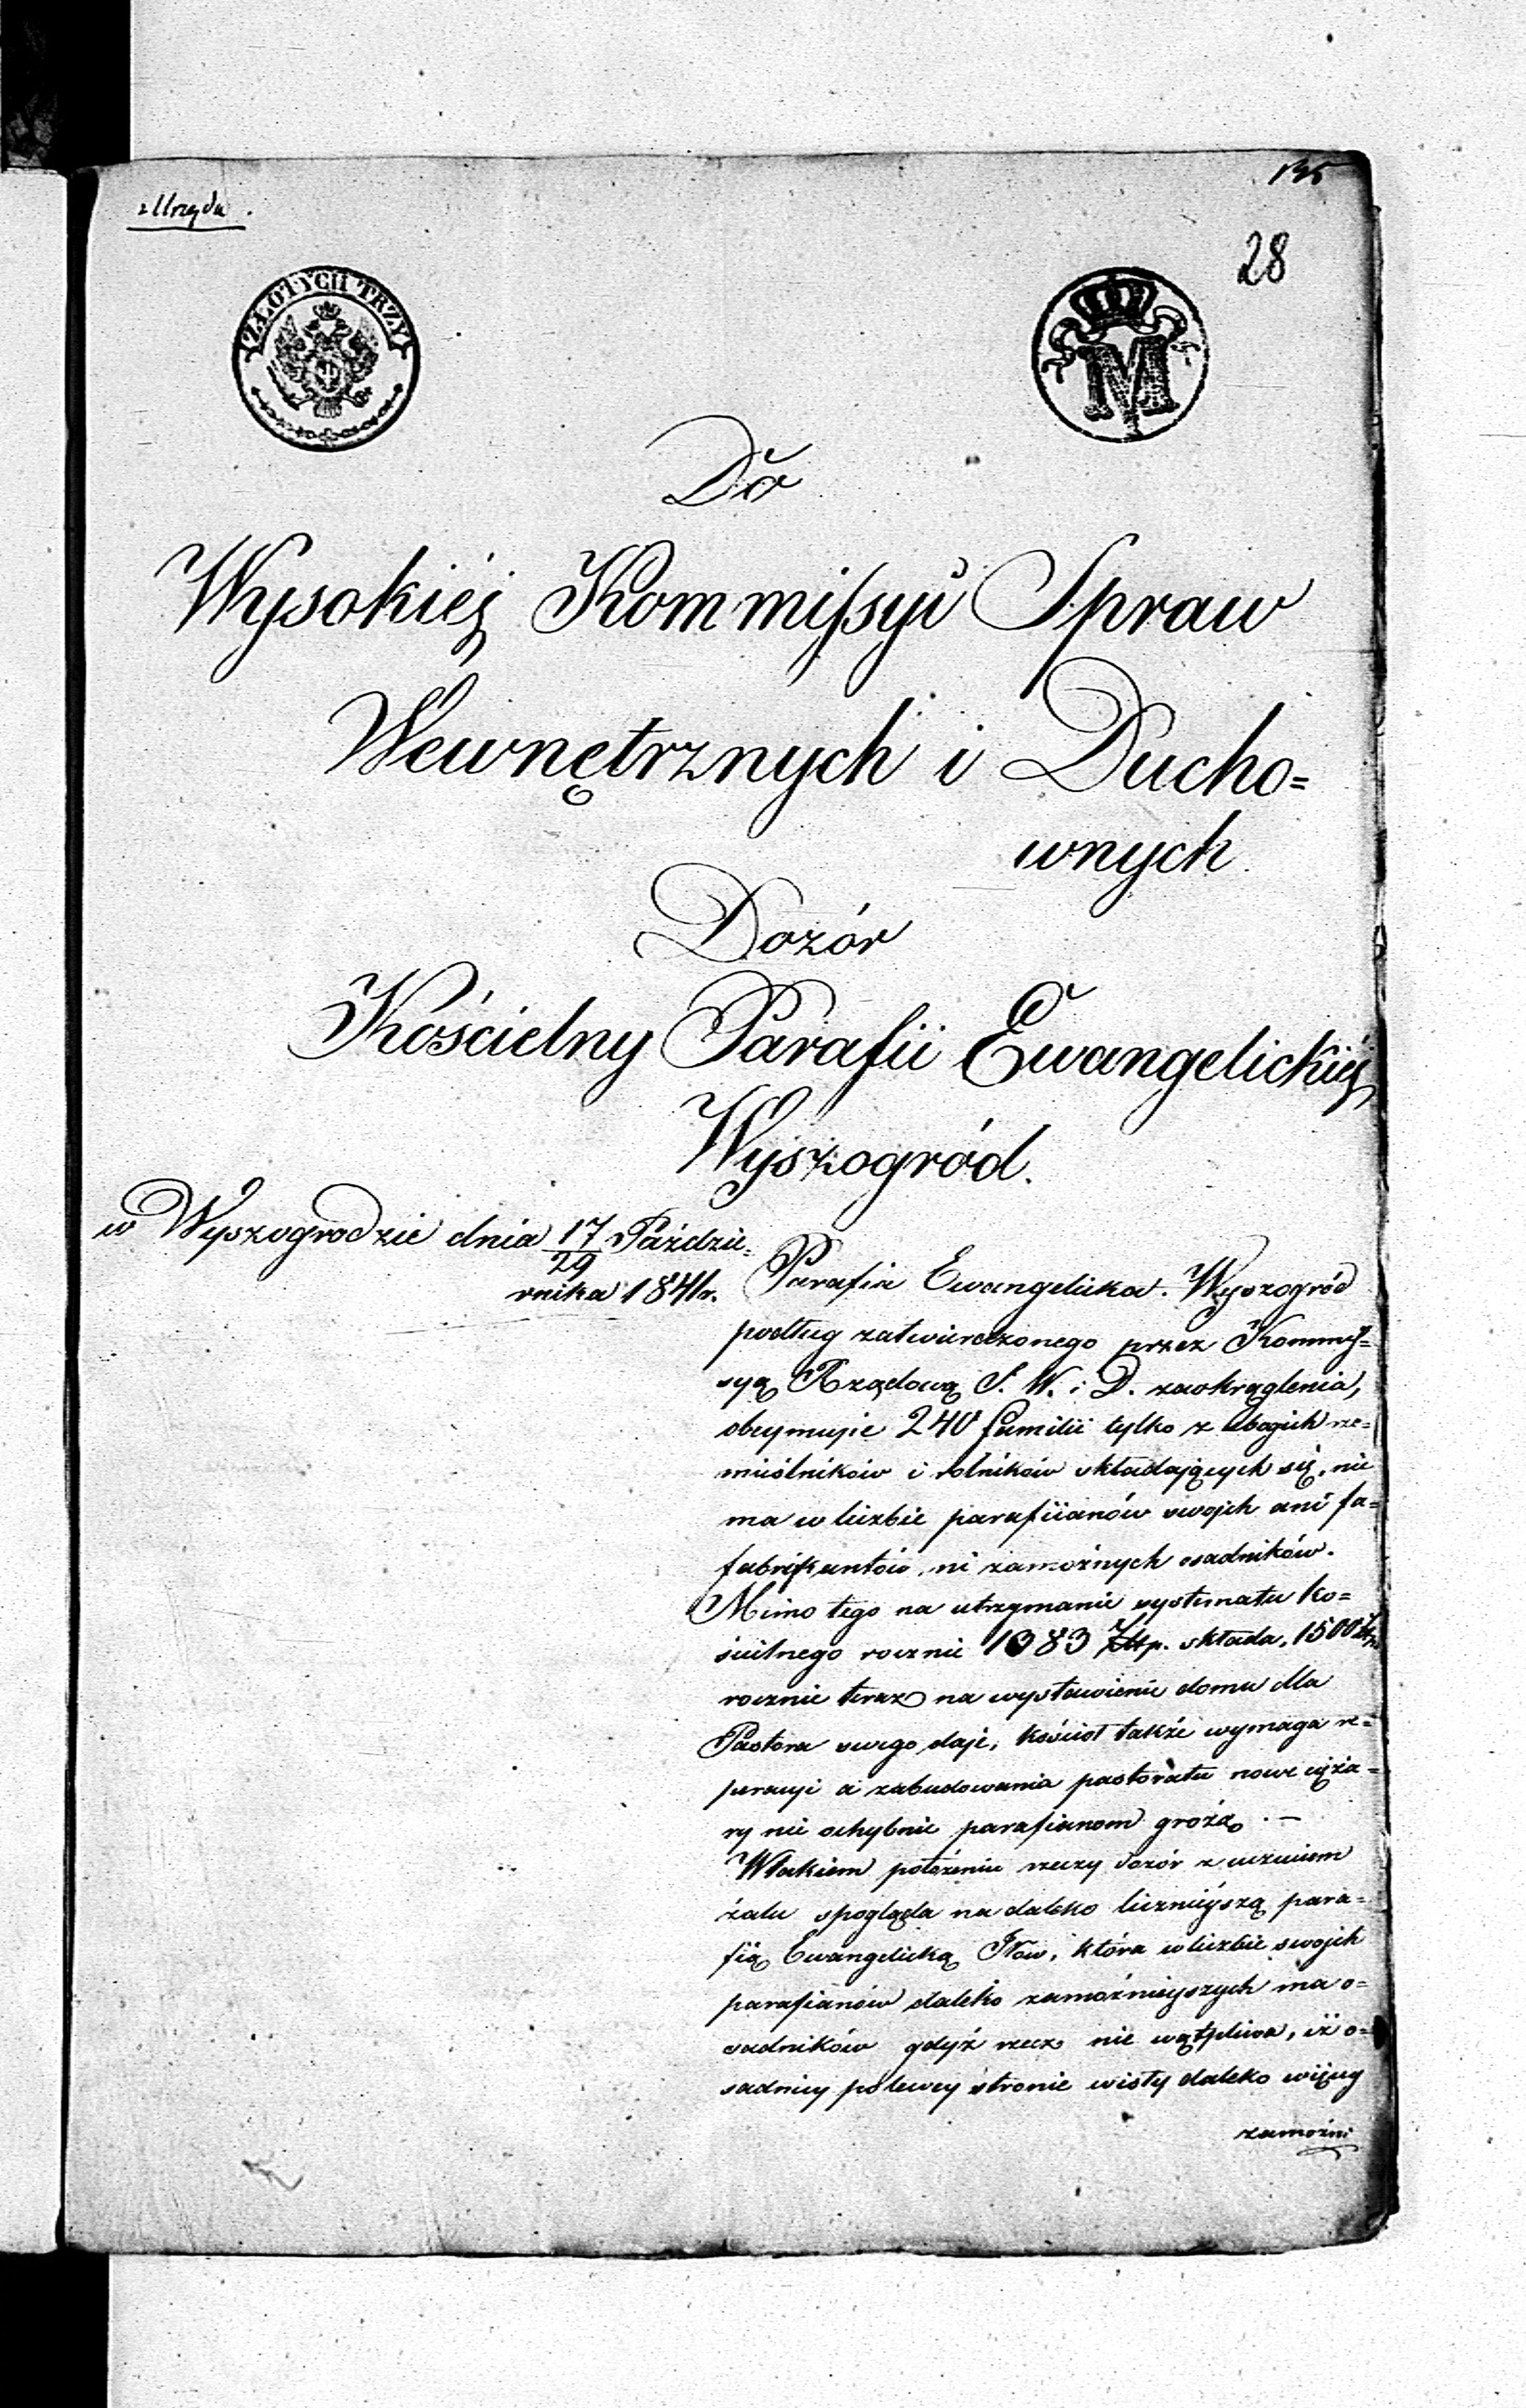 z Urzędu.
28
ZŁOTYCH TRZY
M
Do
Wysokiéj Kommissyi Spraw
Wewnętrznych i Ducho=
wnych.
Dozór
Kościelny Parafii Ewangelickiéj
Wyszogród.
w Wyszogrodzie dnia 17/29 Paździe=
rnika 1841r.
Parafia Ewangelicka. Wyszogród
podług zatwierdzonego przez Kommis=
syą Rządową S. W. i D. zaokrąglenia,
obeymuje 240 familii tylko z ubogich rze=
mieślników i rolników składających się, nie
ma w liczbie parafiianów swojch ani fa=
fabrykantów, ni zamożnych osadników.
Mimo tego na utrzymanie systematu ko=
ścielnego rocznie 1383 Złtp. składa, 1500 Złp
rocznie teraz na wystawienie domu dla
Pastora swego daje, kościoł także wymaga re=
peracyi a zabudowania pastoratu nowe cięża=
ry nie ochybnie parafianom grożą. —
W takiem położeniu rzeczy dozór z uczuciem
żalu spogląda na daleko licznieyszą para=
fią Ewangelicką Iłow, która w liczbie swojch
parafianów daleko zamożnieyszych ma o=
sadników gdyż rzecz nie wątpliwa, iż o=
sadnicy po lewey stronie wisły daleko więcey
zamożni